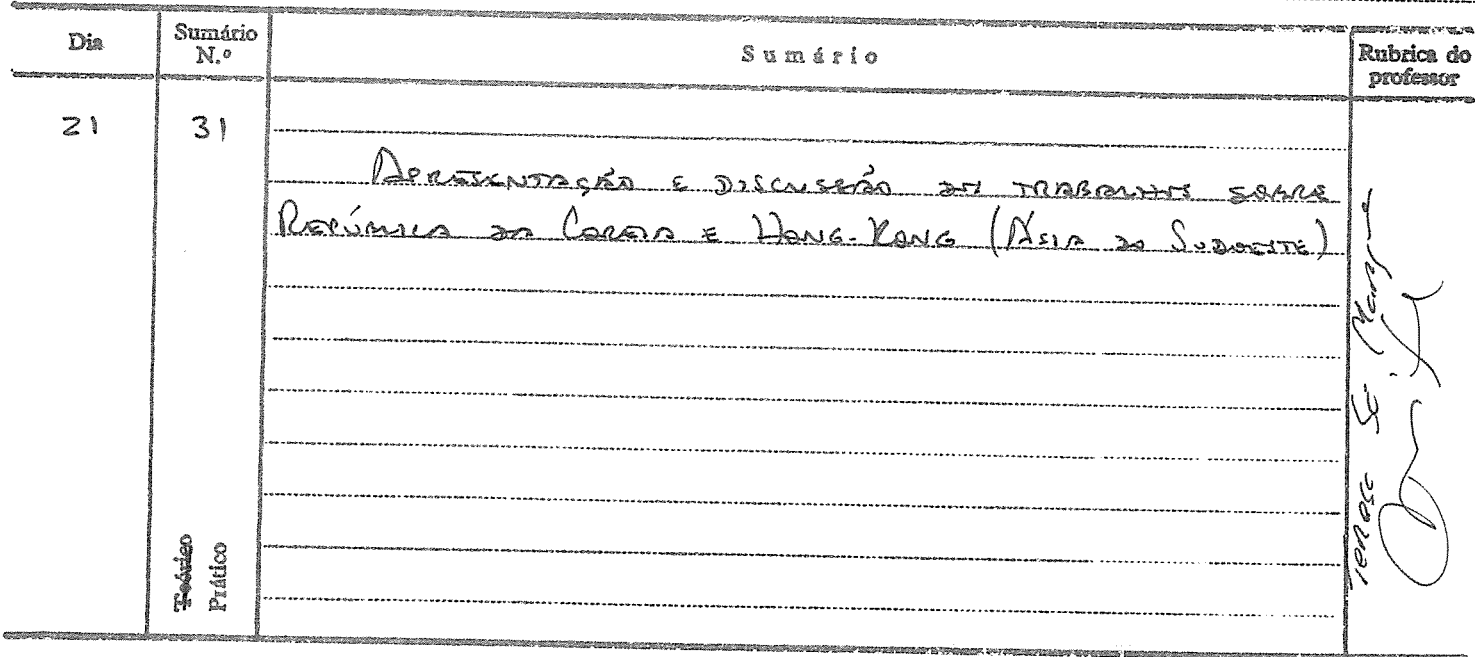 Dia
Sumário
N.º
Sumário
Rubrica do
professor
21
31
Apresentação e discussão de trabalhos sobre
República da Coreia e Hong-Kong (Ásia do Sudoeste)
Teórico
Prático